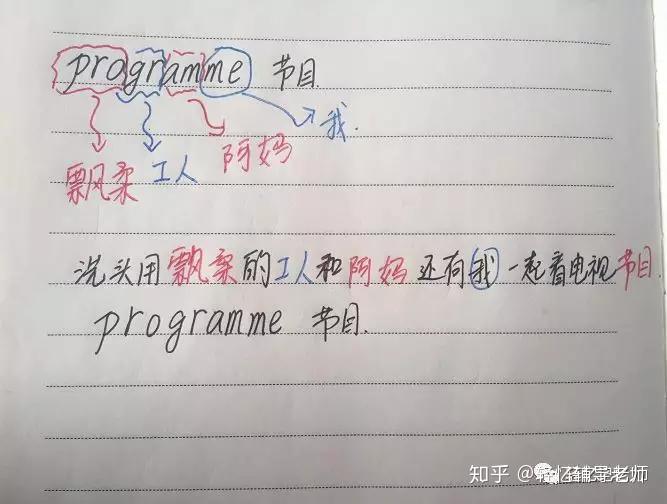 programme 节目
我.
飘柔 工人 阿妈
洗头用飘柔的工人和阿妈还有我一起看电视节目.
programme 节目.
知乎 @
辅导老师